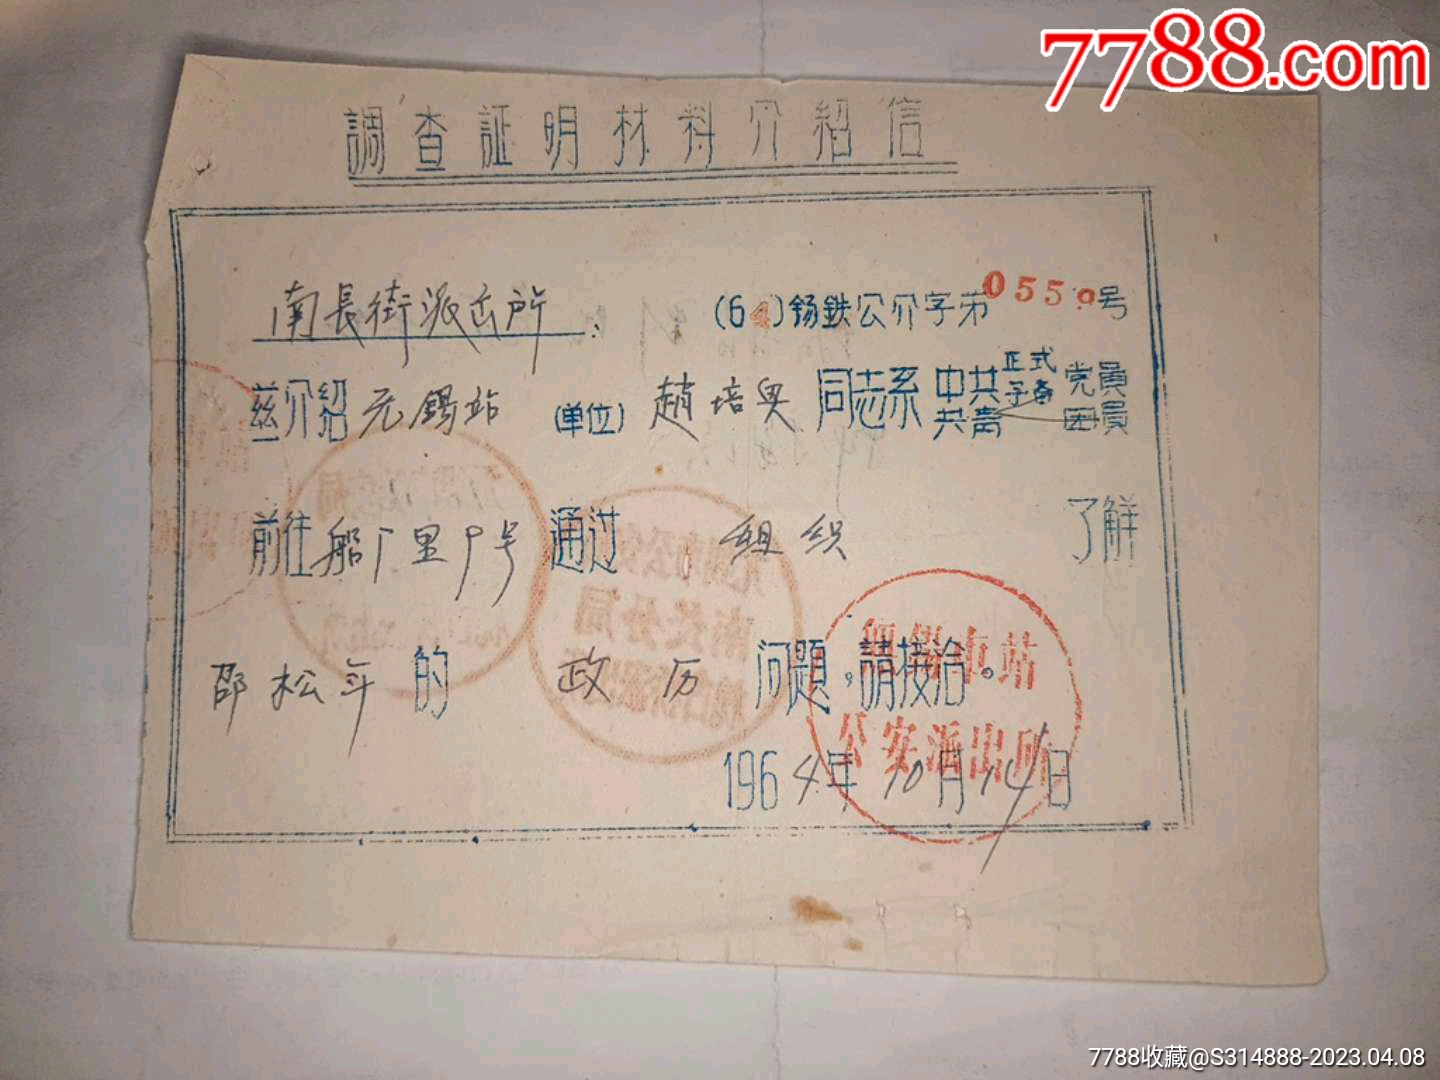 7788.com
調查証明材料介紹信
南長街派出所：
(64)锡鉄公介字第0550号
兹介紹 无锡站 (单位) 趙培 同志系 中共 正式 予备 党員
共青 团員
前往 船厂里9号 通过 组织 了解
邵松年 的 政历 问題，請接洽。
無錫車站
公安派出所
1964年10月14日
7788收藏@S314888-2023.04.08